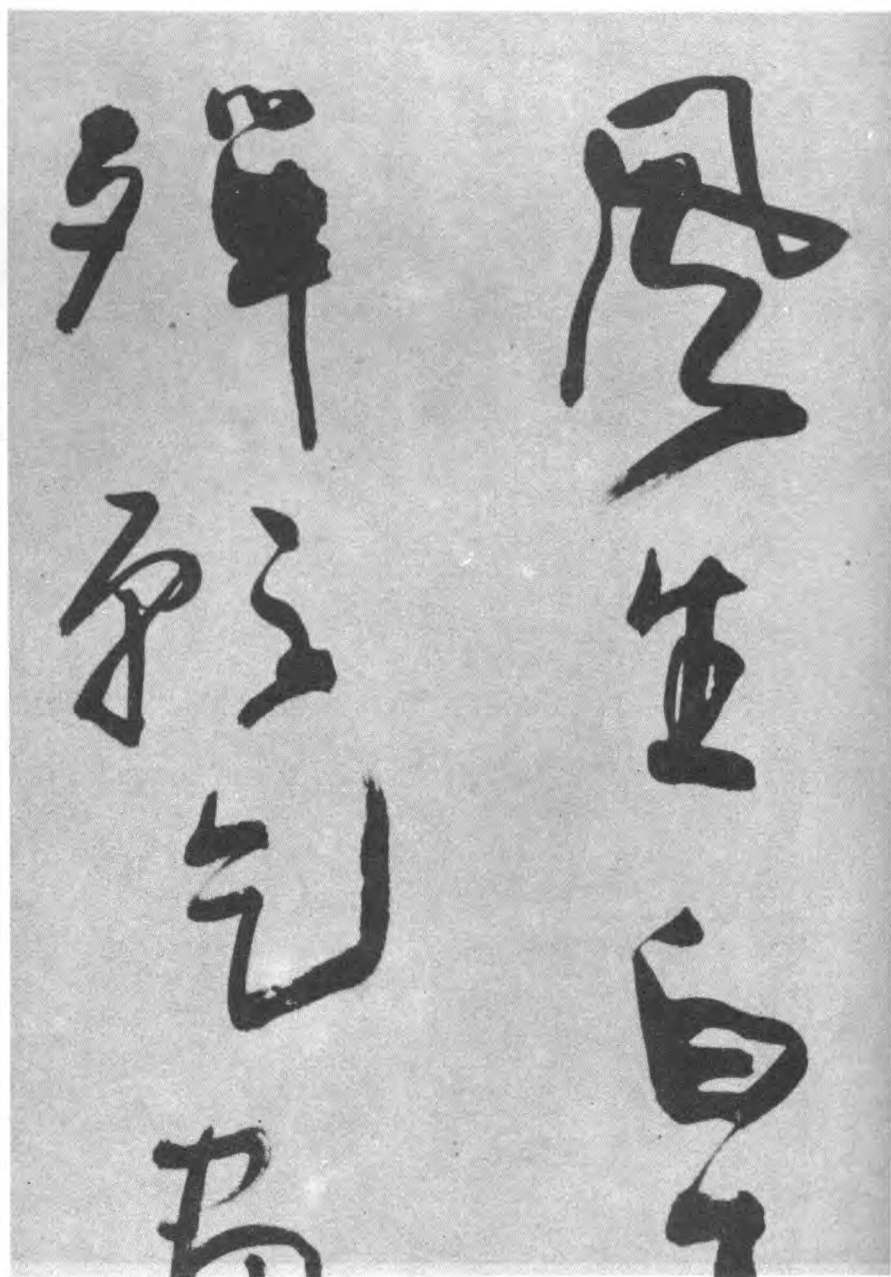 風生白
殫願乞